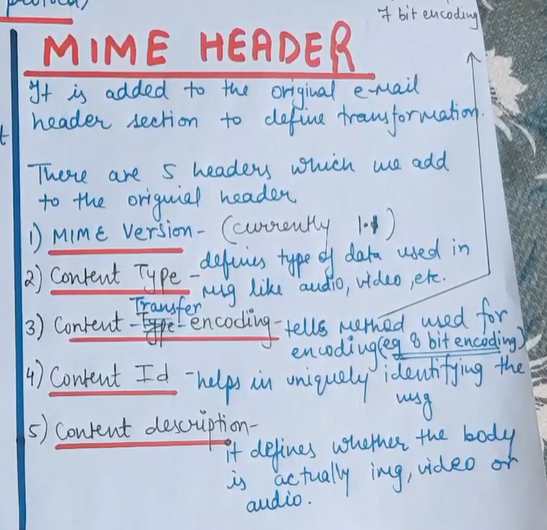 7 bit encoding
MIME HEADER
It is added to the original e-mail
header section to define transformation.
There are 5 headers which we add
to the original header
1) MIME Version - (currently 1.1)
2) Content Type - defines type of data used in
msg like audio, video, etc.
Transfer
3) Content - Type - encoding - tells method used for
encoding (eg 8 bit encoding)
4) Content Id - helps in uniquely identifying the
msg
5) Content description -
it defines whether the body
is actually img, video or
audio.